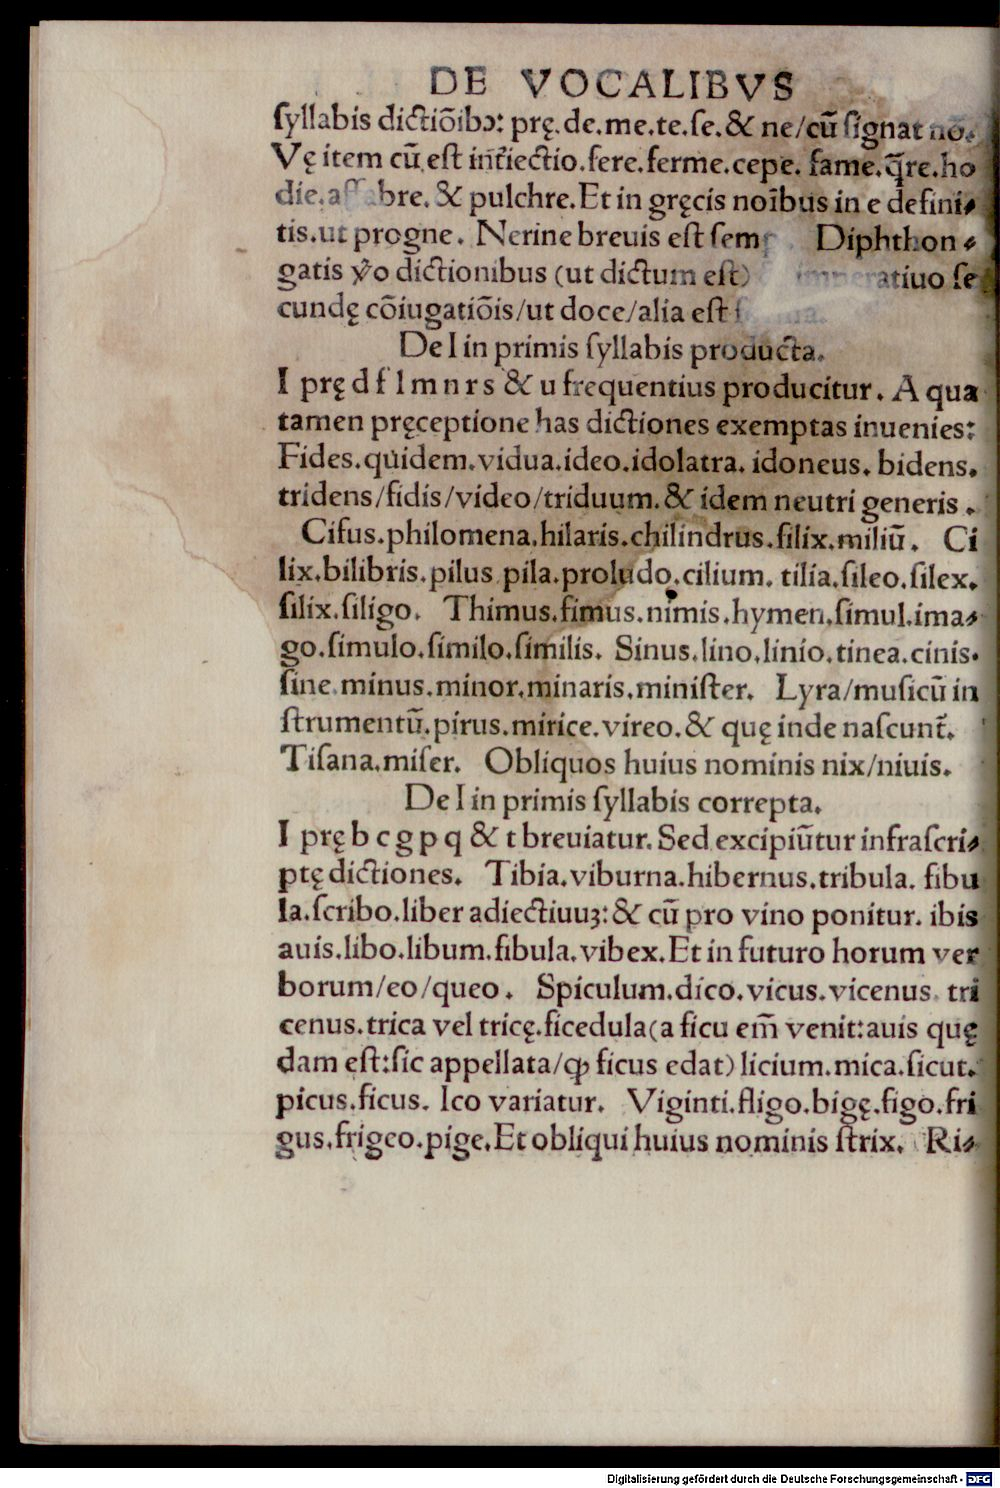 DE VOCALIBVS
ſyllabis dictiõibꝰ: prę.de.me.te.ſe.& ne/cũ ſignat nõ.
Vę item cũ eſt inťiectio.fere.ferme.cepe. fame.q̃re.ho
die.affabre. & pulchre.Et in gręcis noĩbus in e defini-
tis.ut progne. Nerine breuis eſt ſemp Diphthon-
gatis v̊o dictionibus (ut dictum eſt) imperatiuo ſe
cundę cõiugatiõis/ut doce/alia eſt
De I in primis ſyllabis producta.
I prę d f l m n r s & u frequentius producitur. A qua
tamen pręceptione has dictiones exemptas inuenies:
Fides.quidem.vidua.ideo.idolatra. idoneus. bidens.
tridens/fidis/video/triduum.& idem neutri generis.
Cifus.philomena.hilaris.chilindrus.filix.miliũ. Ci
lix.bilibris.pilus pila.proludo.cilium. tilia.ſileo.ſilex.
ſilix.ſiligo. Thimus.fimus.nimis.hymen.ſimul.ima-
go.ſimulo.ſimilo.ſimilis. Sinus.lino.linio.tinea.cinis.
ſine.minus.minor.minaris.miniſter. Lyra/muſicũ in
ſtrumentũ.pirus.mirice.vireo.& quę inde naſcunť.
Tiſana.miſer. Obliquos huius nominis nix/niuis.
De I in primis ſyllabis correpta.
I prę b c g p q & t breuiatur. Sed excipiũtur infraſcri-
ptę dictiones. Tibia.viburna.hibernus.tribula. fibu
la.ſcribo.liber adiectiuuꝫ:& cũ pro vino ponitur. ibis
auis.libo.libum.fibula.vibex.Et in futuro horum ver
borum/eo/queo. Spiculum.dico.vicus.vicenus. tri
cenus.trica vel tricę.ficedula(a ficu em̃ venit:auis quę
dam eſt:ſic appellata/ꝙ ficus edat) licium.mica.ſicut.
picus.ficus. Ico variatur. Viginti.fligo.bigę.figo.fri
gus.frigeo.pige.Et obliqui huius nominis ſtrix. Ri-
Digitalisierung gefördert durch die Deutsche Forschungsgemeinschaft - DFG